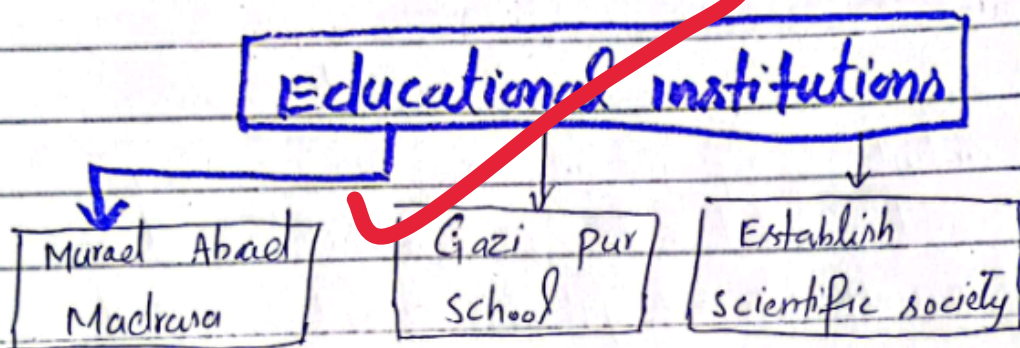 Educational institutions
Murad Abad
Madrasa
Gazi pur
school
Establish
scientific society